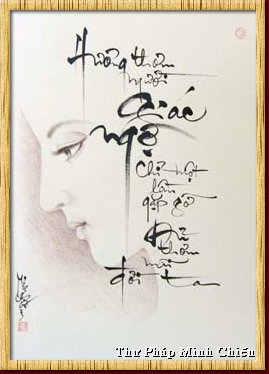 Hương thơm
người
Giác
ngộ
chỉ một
lần
gặp gỡ
Đủ
thơm
mãi
đời ta
Thư Pháp Minh Chiếu